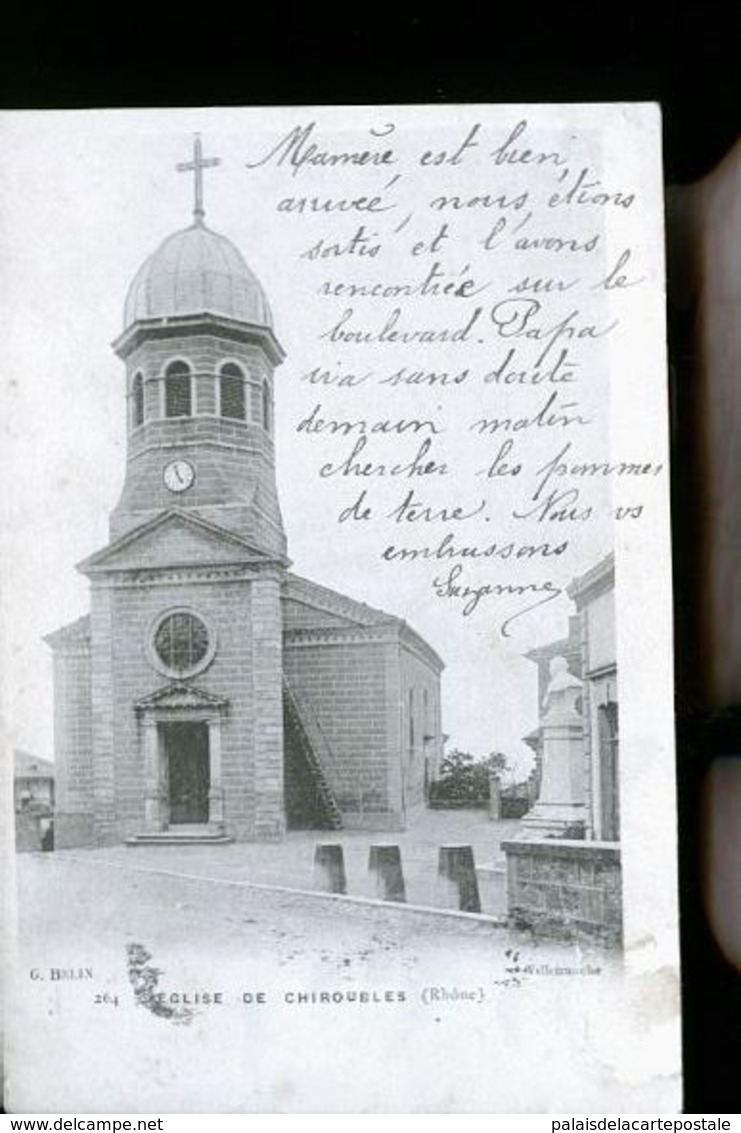 Mamère est bien
arrivée, nous étions
sortis et l'avons
rencontrée sur le
boulevard. Papa
ira sans doute
demain matin
chercher les pommes
de terre. Nous vs
embrassons
Suzanne
G. BELIN
Villefranche
264 EGLISE DE CHIROUBLES (Rhône)
www.delcampe.net
palaisdelacartepostale